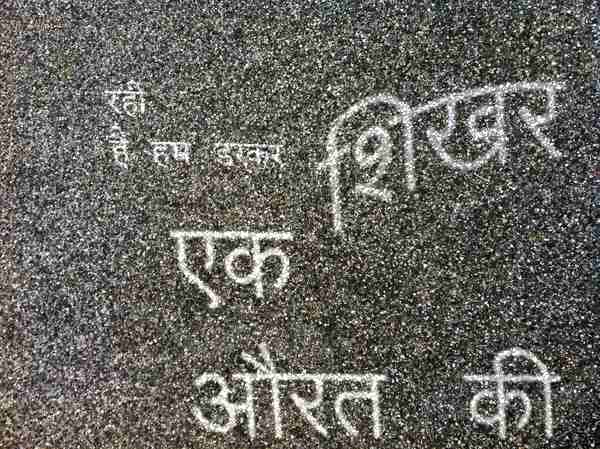 रही
है हम डरकर
शिखर
एक
औरत की